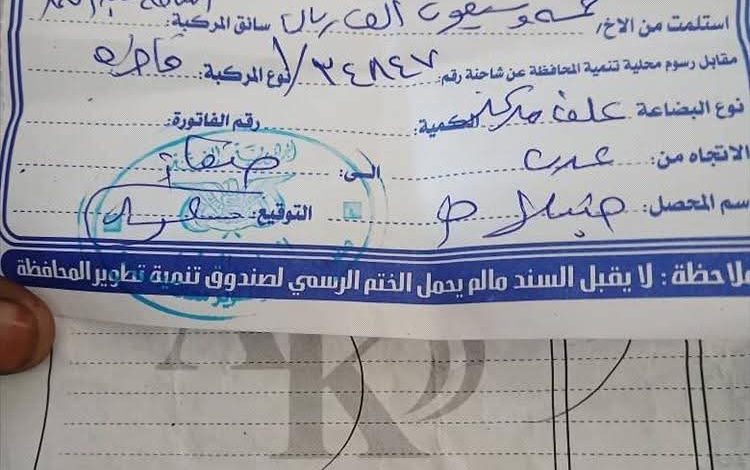 استلمت من الاخ/ خمسة وسبعون الف ريال سائق المركبة:
مقابل رسوم محلية تنمية المحافظة عن شاحنة رقم: ٣٤٨٤٧/١ نوع المركبة: قاطرة
نوع البضاعة علف مركز الكمية: رقم الفاتورة:
الاتجاه من: عدن الى: صنعاء
سم المحصل: التوقيع:
ملاحظة: لا يقبل السند مالم يحمل الختم الرسمي لصندوق تنمية تطوير المحافظة